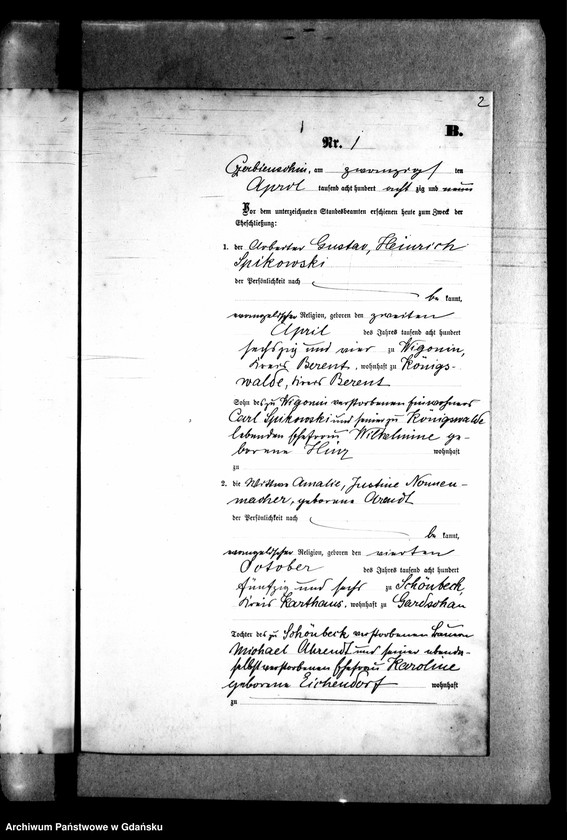 2
B.
Nr. 1
Czerbienschin, am zwanzigsten
April tausend acht hundert acht zig und neun
Vor dem unterzeichneten Standesbeamten erschienen heute zum Zweck der
Eheschließung:
1. der Arbeiter Gustav, Heinrich
Spikowski
der Persönlichkeit nach
be kannt,
evangelischer Religion, geboren den zweiten
April des Jahres tausend acht hundert
sechszig und vier zu Wigonin,
Kreis Berent, wohnhaft zu Königs-
walde, Kreis Berent
Sohn des zu Wigonin verstorbenen Einwohners
Carl Spikowski und seiner zu Königswalde
lebenden Ehefrau Wilhelmine ge-
borene Hinz wohnhaft
zu
2. die Wittwe Amalie, Justine Nonnen-
macher, geborene Arendt
der Persönlichkeit nach
be kannt,
evangelischer Religion, geboren den vierten
October des Jahres tausend acht hundert
fünfzig und sechs zu Schönbeck,
Kreis Karthaus, wohnhaft zu Gardschau
Tochter des zu Schönbeck verstorbenen
Michael Ahrendt und seiner ebenda-
selbst verstorbenen Ehefrau Karoline
geborene Eichendorf wohnhaft
zu
Archiwum Państwowe w Gdańsku